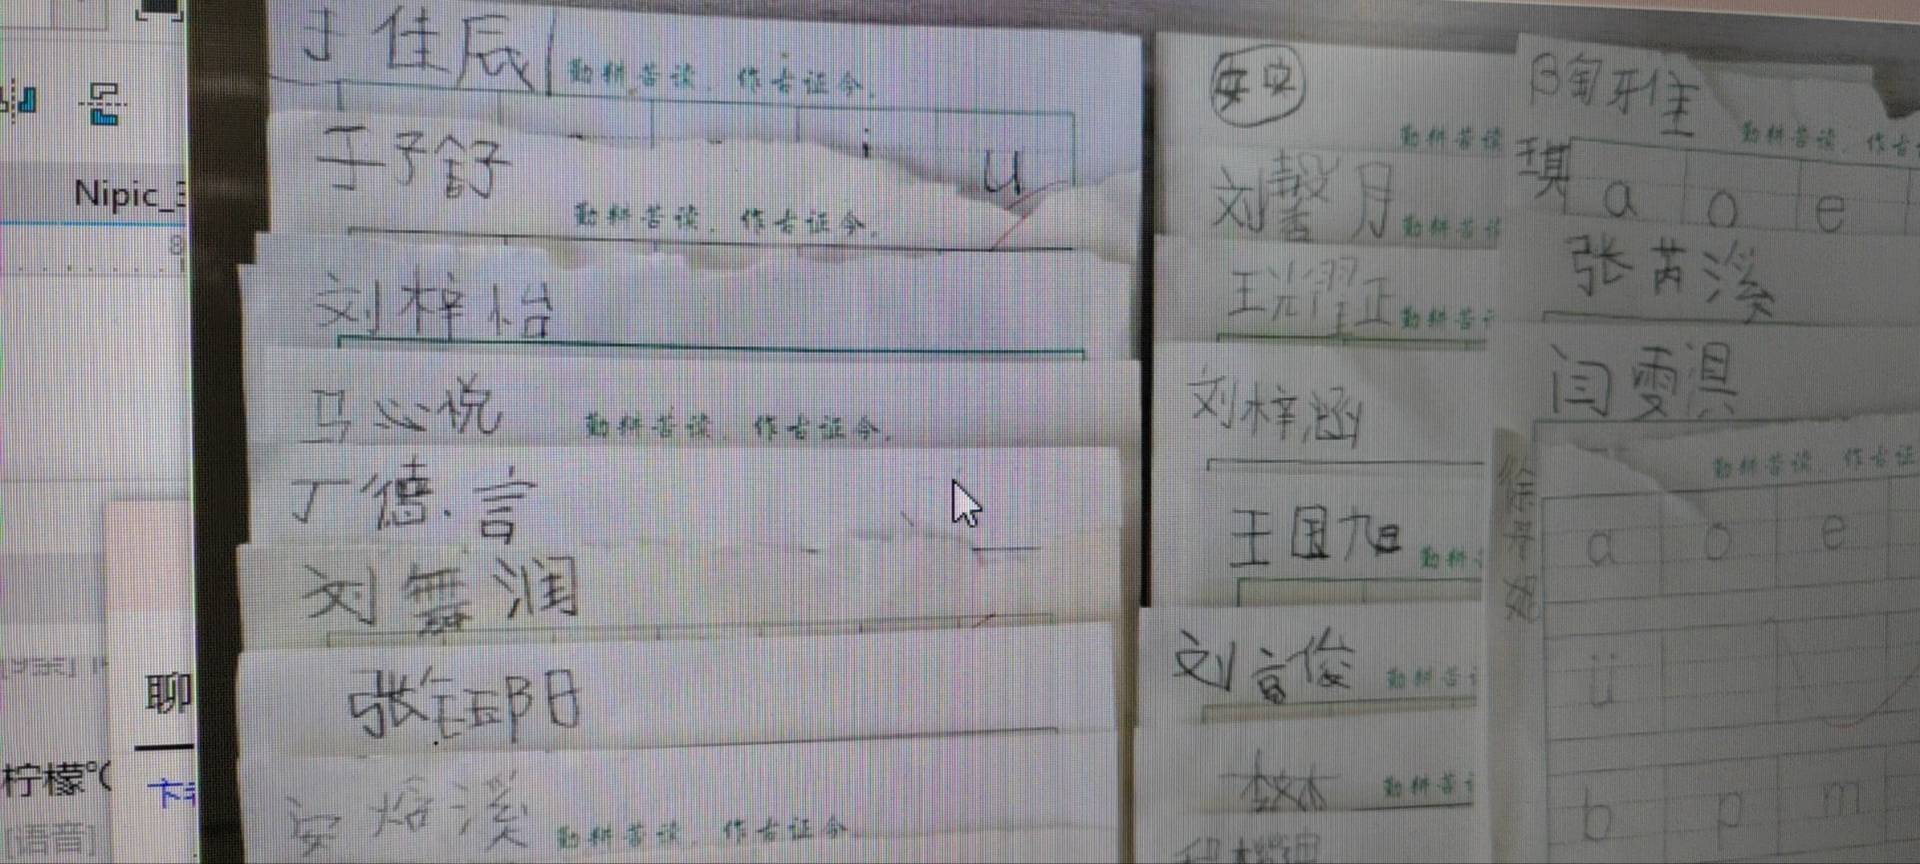 Nipic_3
8
聊
柠檬°C
[语音]
于佳辰
勤耕苦读.作古证今.
i
u
于子舒
勤耕苦读.作古证今.
刘梓怡
马心悦
勤耕苦读.作古证今.
丁德言
刘舞润
张钰阳
安焓溪
勤耕苦读.作古证今
安安
勤耕苦读
刘馨月
勤耕苦读
王滟正
勤耕苦
刘梓涵
王国旭
勤耕
刘言俊
勤耕苦
勤耕苦
陶雅琪
勤耕苦读.作古
a o e
张芮溪
闫雯淇
勤耕苦读.作古证
a o e
ü
b p m